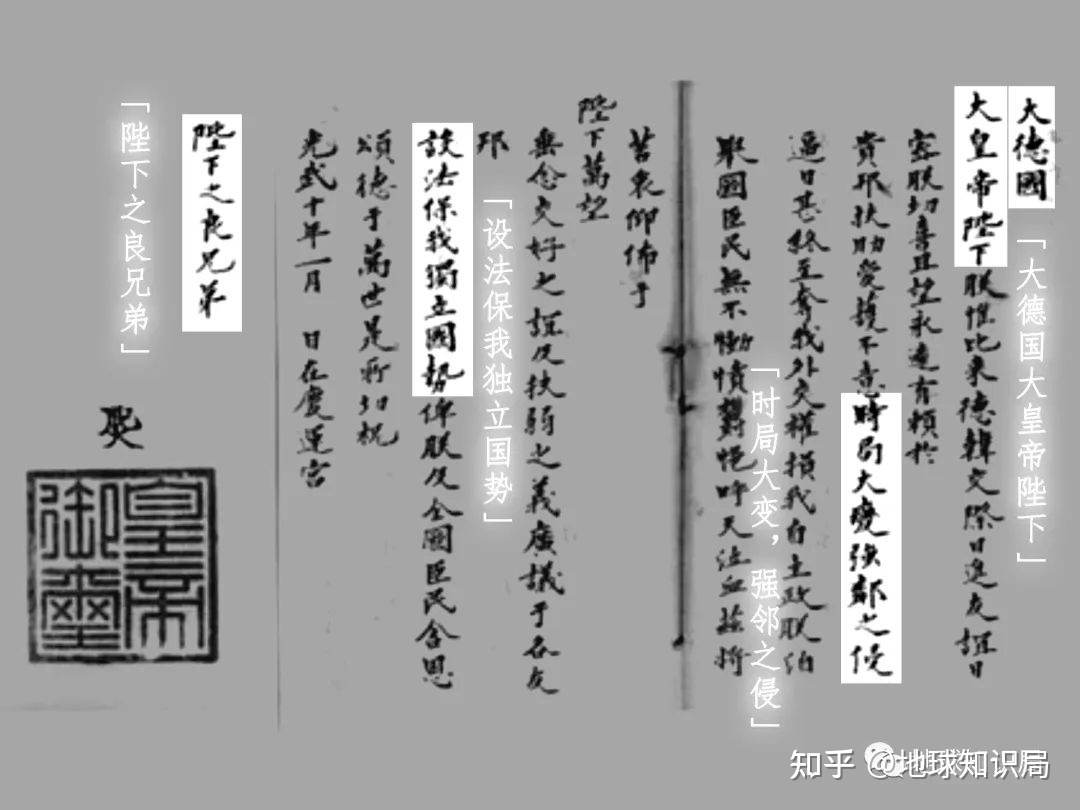 大德國
「大德国大皇帝陛下」
大皇帝陛下朕惟比来德韓交際日進友誼日
密朕切喜且望永遠有賴於
貴邦扶助愛護不意時局大變强鄰之侵
逼日甚終至奪我外交權損我自主政朕洎
「时局大变，强邻之侵」
國臣民無不慟憤鬱悒呼天泣血茲將
苦衷仰佈于
陛下萬望
垂念交好之誼及扶弱之義廣議于各友
邦
「设法保我独立国势」
設法保我獨立國勢俾朕及全國臣民含恩
頌德于萬世是所切祝
光武十年一月 日在慶運宮
陛下之良兄弟
「陛下之良兄弟」
皇帝
御璽
知乎 @地球知识局